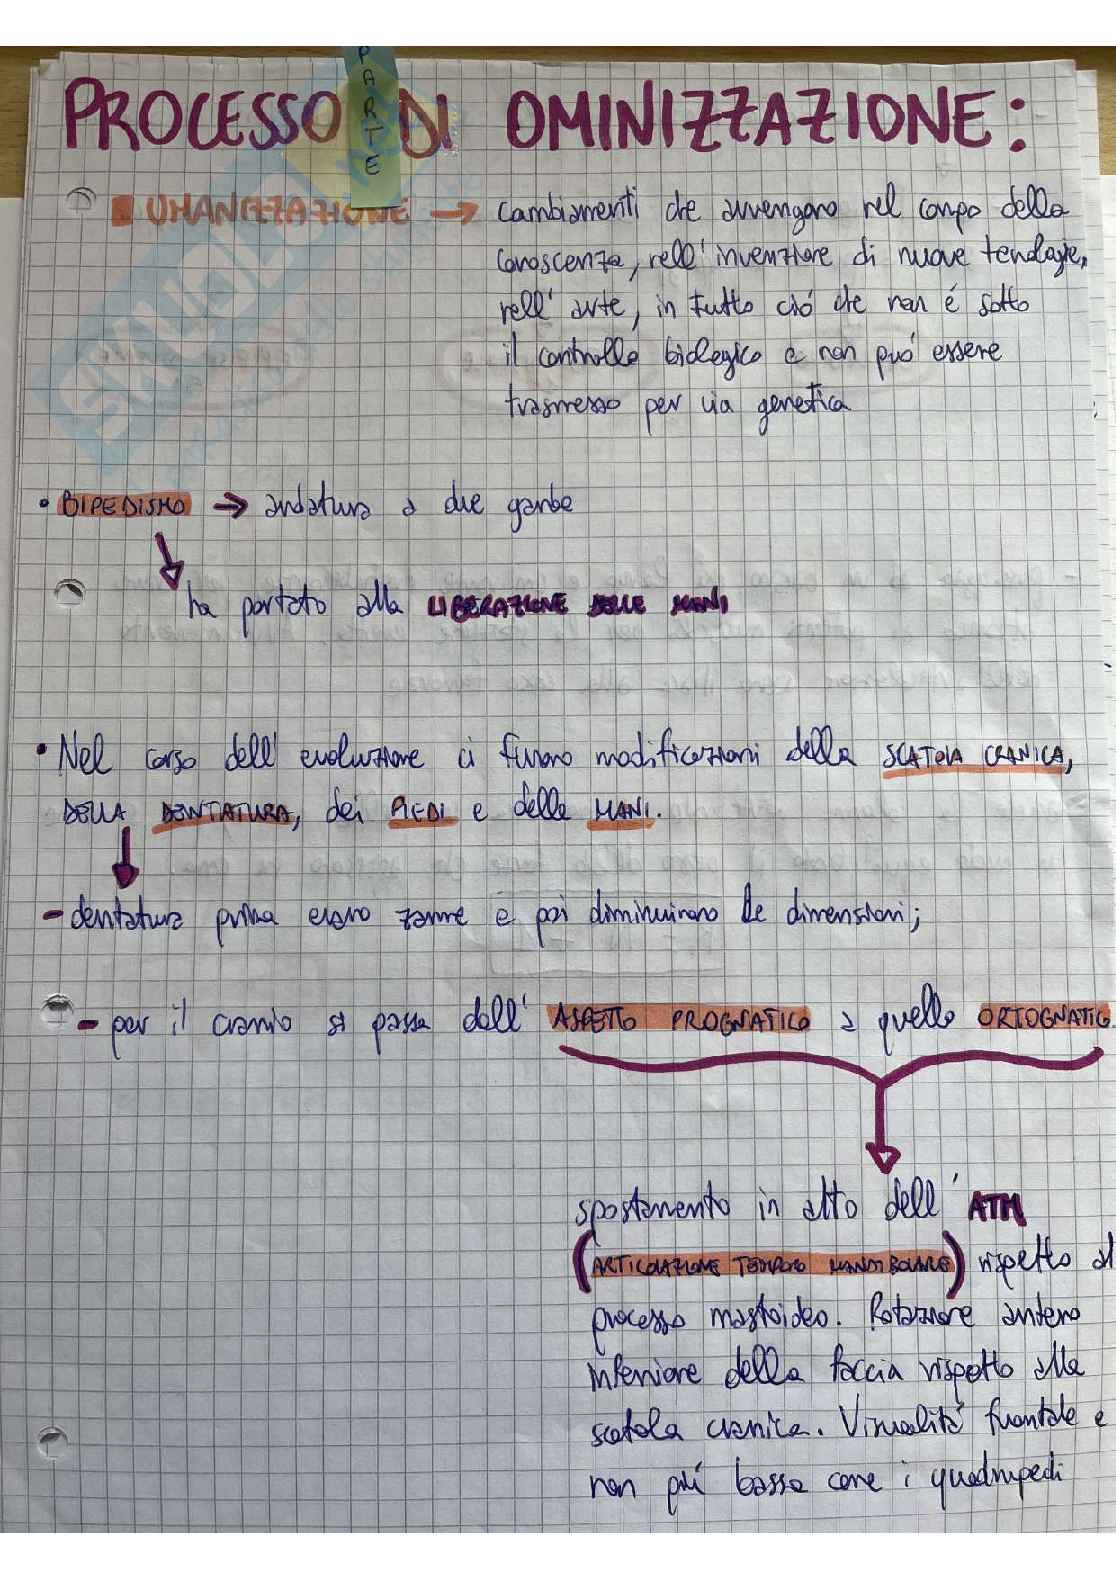 PARTE
PROCESSO DI OMINIZZAZIONE:
UMANIZZAZIONE → cambiamenti che avvengono nel campo della
conoscenza, nell'invenzione di nuove tenologie,
nell'arte, in tutto ció che non é sotto
il controllo biologico e non puó essere
trasmesso per via genetica
• BIPEDISMO → andatura a due gambe
ha portato alla LIBERAZIONE DELLE MANI
• Nel corso dell'evoluzione ci furono modificazioni della SCATOLA CRANICA,
DELLA DENTATURA, dei PIEDI e delle MANI.
- dentatura prima erano zanne e poi diminuirono le dimensioni;
- per il cranio si passa dall'ASPETTO PROGNATICO a quello ORTOGNATICO.
spostamento in alto dell'ATM
(ARTICOLAZIONE TEMPORO MANDIBOLARE) rispetto al
processo mastoideo. Rotazione antero
inferiore della faccia rispetto alla
scatola cranica. Visualitá frontale e
non piú bassa come i quadrupedi
SKUOLA